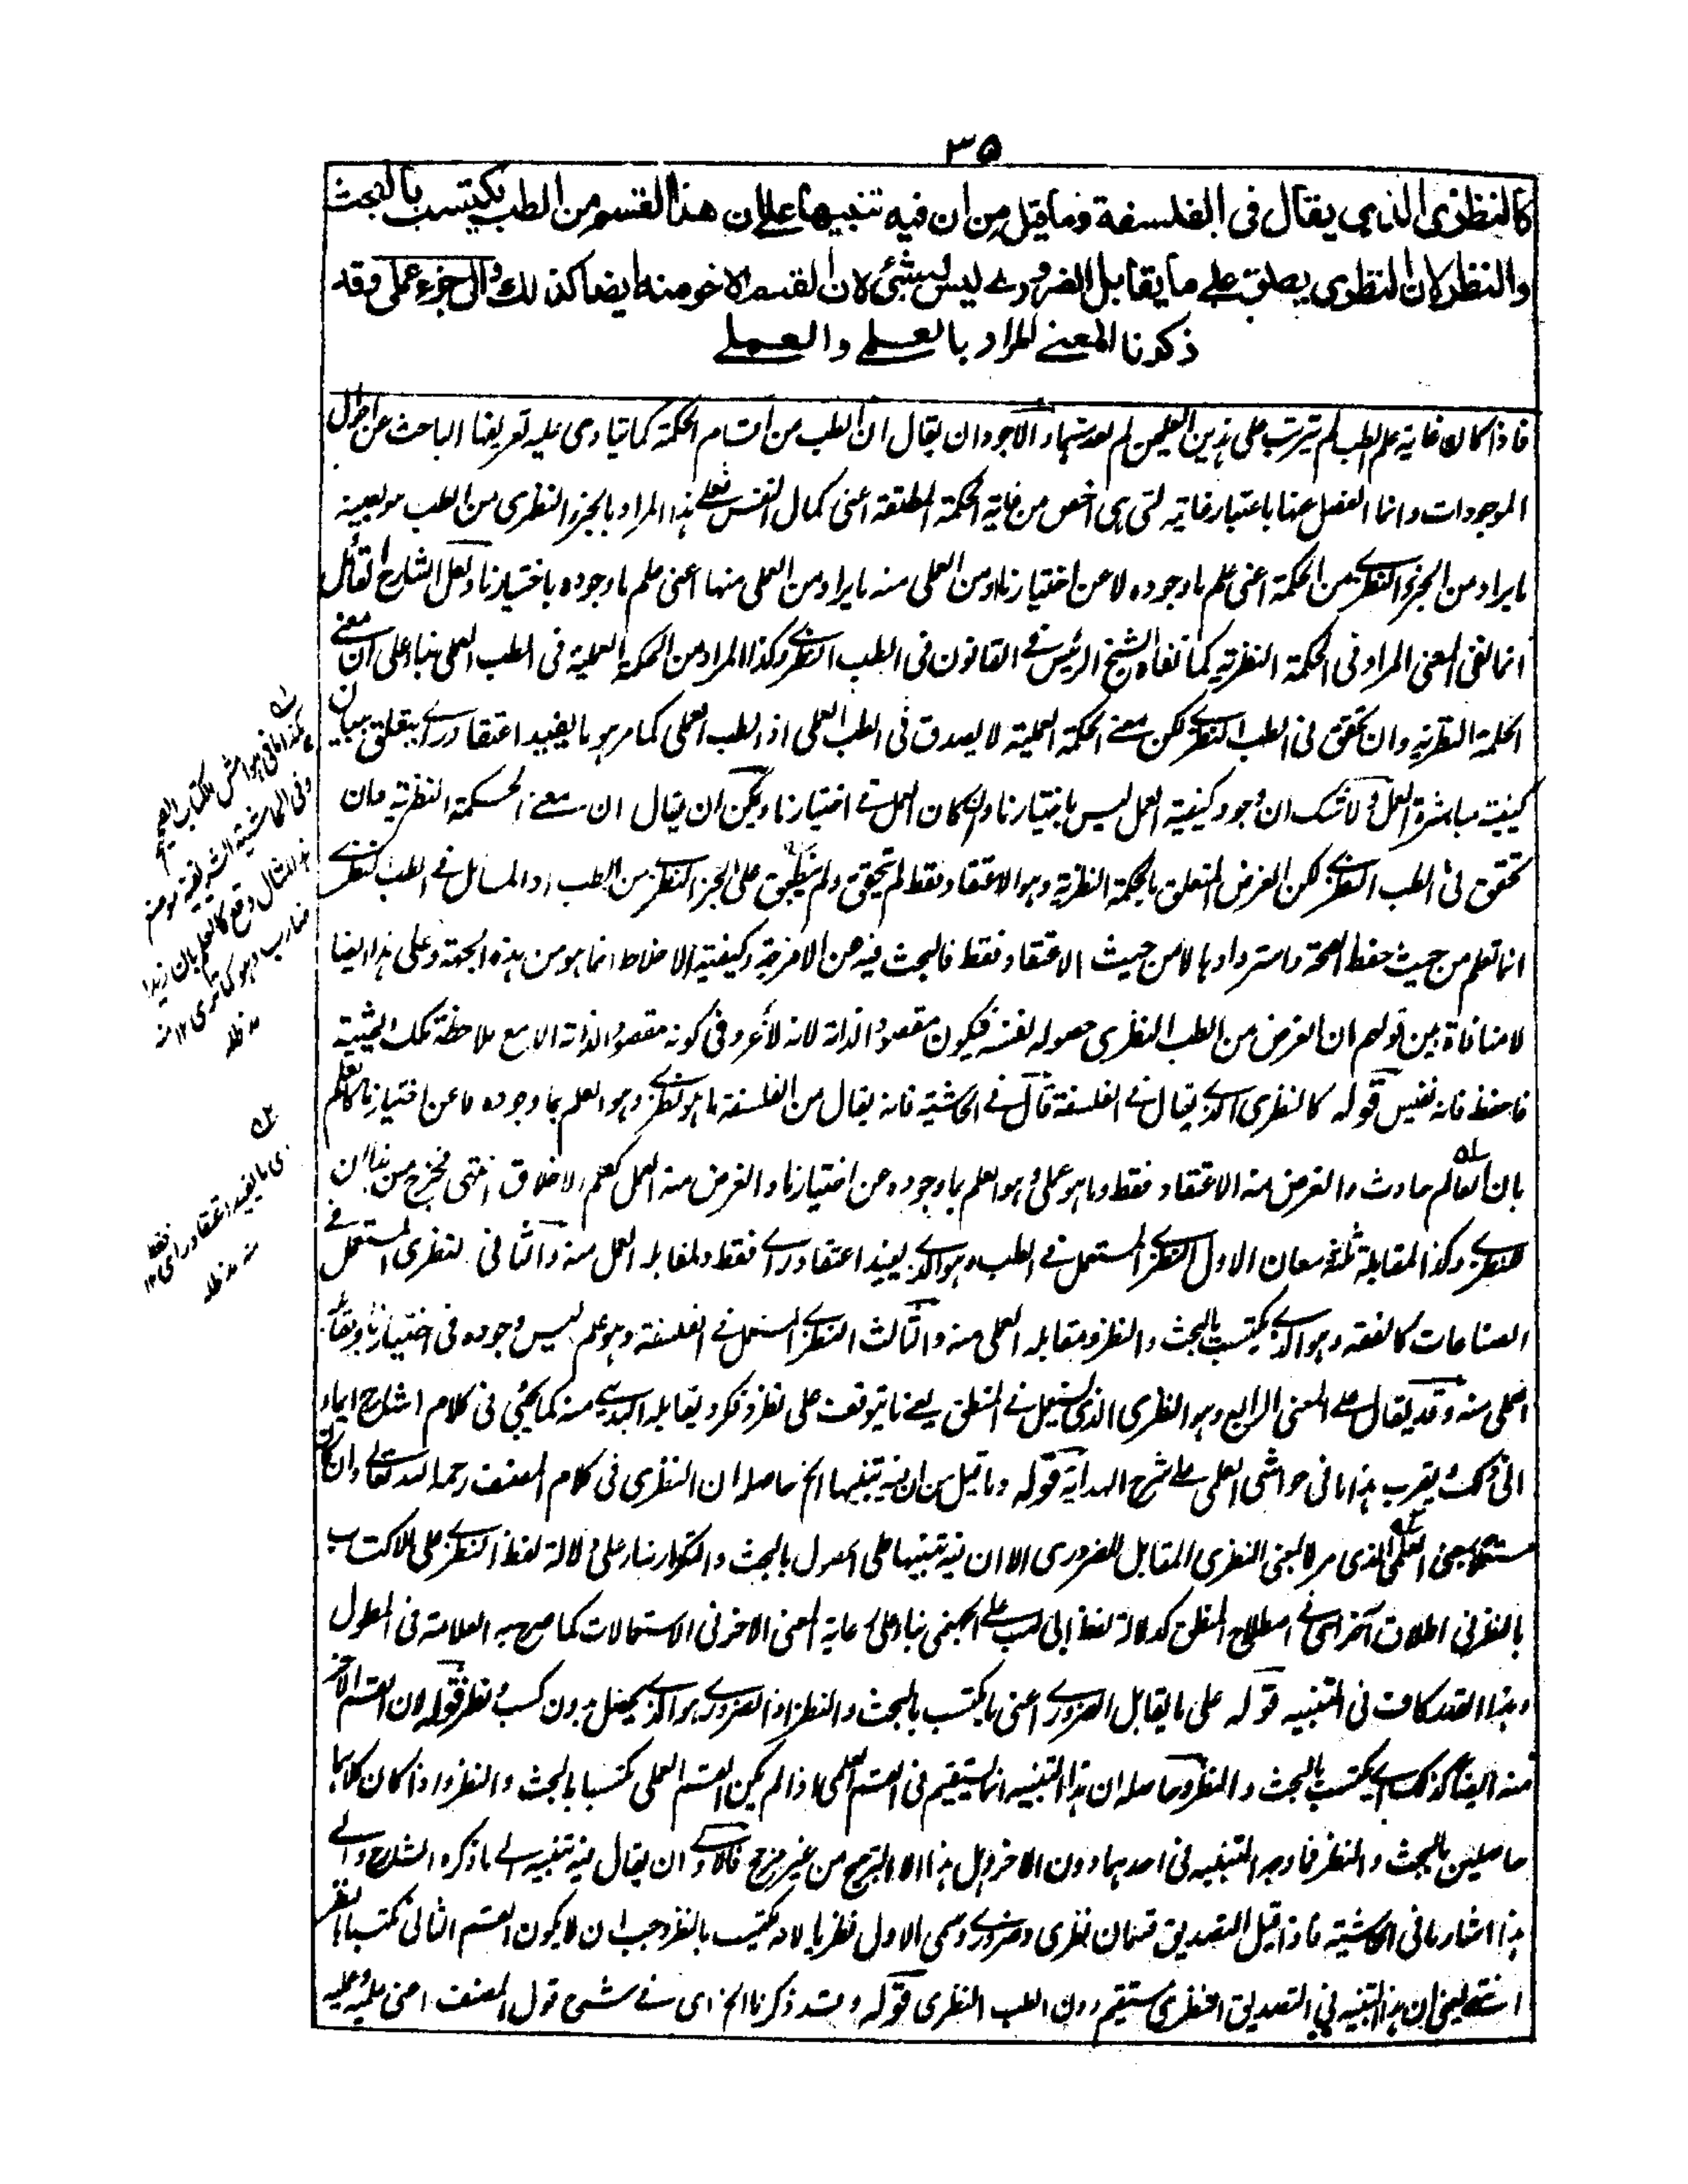 ۳۵
كالنظرى الذى يقال فى الفلسفة وما قيل من ان فيه تنبيها على ان هذا القسم من الطب يكتسب بالبحث
والنظر لان النظرى يطلق على ما يقابل الضرورے ليس بشئ لان القسم الاخر منه ايضا كذلك والى جزء عملى وقد
ذكرنا المعنے المراد بالعلمے والعملے
فاذا كان غاية علم الطب لم تترتب على هذين العلمين لم يعد منهما والاجود ان يقال ان الطب من اقسام الحكمة كما ينادى عليه تعريفها الباحث عن احوال
الموجودات وانما انفصل عنها باعتبار غايته التى هى اخص من غاية الحكمة المطلقة اعنى كمال النفس فعلے هذا المراد بالجزء النظرى من الطب هو بعينه
ما يراد من الجزء النظرے من الحكمة اعنى علم ما وجوده لا عن اختيارنا ومن العملى منه ما يراد من العملى منها اعنى علم ما وجوده باختيارنا ولعل الشارح القائل
انما نفى المعنى المراد فى الحكمة النظرية كما نفاه الشيخ الرئيس فے القانون فى الطب النظرے وكذا المراد من الحكمة العملية فى الطب العملى بناء على ان معنے
الحكمة النظرية وان تحقق فى الطب النظرے لكن معنے الحكمة العملية لا يصدق فى الطب العملى اذ الطب العملى كما مر هو ما يفيد اعتقاد رے يتعلق ببيان
كيفية مباشرة العمل ولا شك ان وجود كيفية العمل ليس باختيارنا وان كان العمل فے اختيارنا ويمكن ان يقال ان معنے الحكمة النظرية وان
تحقق فى الطب النظرے لكن الغرض المتعلق بالحكمة النظرية وهو الاعتقاد فقط لم يتحقق ولم ينطبق على الجزء النظرے من الطب اذ المسائل فے الطب النظرے
انما تعلم من حيث حفظ الصحة واستردادها لا من حيث الاعتقاد فقط فالبحث فيه عن الامزجة وكيفية الاخلاط انما هو من هذه الجهة وعلى هذا ايضا
لا منافاة بين قولهم ان الغرض من الطب النظرى حصوله لنفسه فيكون مقصود الذاته لانه لا غرو فى كونه مقصود الذاته الا مع ملاحظة تلك الحيثية
فاحفظ فانه نفيس قوله كالنظرى الذے يقال فے الفلسفة قال فے الحاشية فانه يقال من الفلسفة ما هو نظرے وهو العلم بما وجوده لا عن اختيارنا كالعلم
بان العالم حادث والغرض منه الاعتقاد فقط وما هو عملى وهو العلم بما وجوده عن اختيارنا والغرض منه العمل كعلم الاخلاق انتهى فخرج من هنا ان
للنظرے وكذا لمقابله ثلثة معان الاول النظرے المستعمل فے الطب وهو الذے يفيد اعتقاد رے فقط ولمقابله العمل منه والثانى النظرى المستعمل فے
الصناعات كالفقه وهو الذے يكتسب بالبحث والنظر ومقابله العملى منه والثالث النظرے المستعمل فے الفلسفة وهو علم ليس وجوده فى اختيارنا ويقابله
العملى منه وقد يقال على المعنى الرابع وهو النظرى الذى يستعمل فے المنطق يعنے ما يتوقف على نظر وفكر ويقابله البديهے منه كما يجئى فى كلام الشارح ايماء
الى ذلك ويقرب هذا ما فى حواشى العلمى على شرح الهداية قوله وما قيل من ان فيه تنبيها الخ حاصله ان النظرى فى كلام المصنف رحمه الله تعالے وان كان
مستعملا بمعنى العلمى الذى مر لا بمعنى النظرى المقابل للضرورى الا ان فيه تنبيها على الحصول بالبحث والتكرار بناء على دلالة لفظ النظرے على الاكتساب
بالنظر فى اطلاق آخر اعنى فے اصطلاح المنطق كدلالة لفظ ابى لهب على الجهنمى بناء على رعاية المعنى الاخر فى الاستعمالات كما صرح به العلامة فى المطول
وهذا القدر كاف فى التنبيه قوله على ما يقابل الضرورے اعنى ما يكتسب بالبحث والنظر اذ الضرورے هو الذے يحصل بدون كسب ونظر قوله لان القسم الاخر
منه ايضا كذلك اے يكتسب بالبحث والنظر وحاصله ان هذا التنبيه انما يستقيم فى القسم العلمى اذا لم يكن القسم العملى مكتسبا بالبحث والنظر واذا كان كلاهما
حاصلين بالبحث والنظر فما وجه التنبيه فى احدهما دون الاخر وهل هذا الا الترجيح من غير مرجح فالاولے ان يقال فيه تنبيه الے ما ذكره الشارح والے
هذا اشار ما فى الحاشية فاذا قيل التصديق قسمان نظرى وضرورے وسمى الاول نظريا لانه مكتسب بالنظر وجب ان لا يكون القسم الثانى مكتسبا بالنظر
انتهے يعنى ان هذا التنبيه فى التصديق النظرى مستقيم دون الطب النظرى قوله وقد ذكرنا الخ اى فے شرح قول المصنف اعنى علمية وعملية
كذا فى هوامش الكتاب
وفى الحاشية الشريفية
المثال وقع كالعلم بان زيدا
ضارب وهو كما ترى ١٢ منه
مد ظله
اى ما يفيد اعتقاد راى فقط ١٢
منه مد ظله